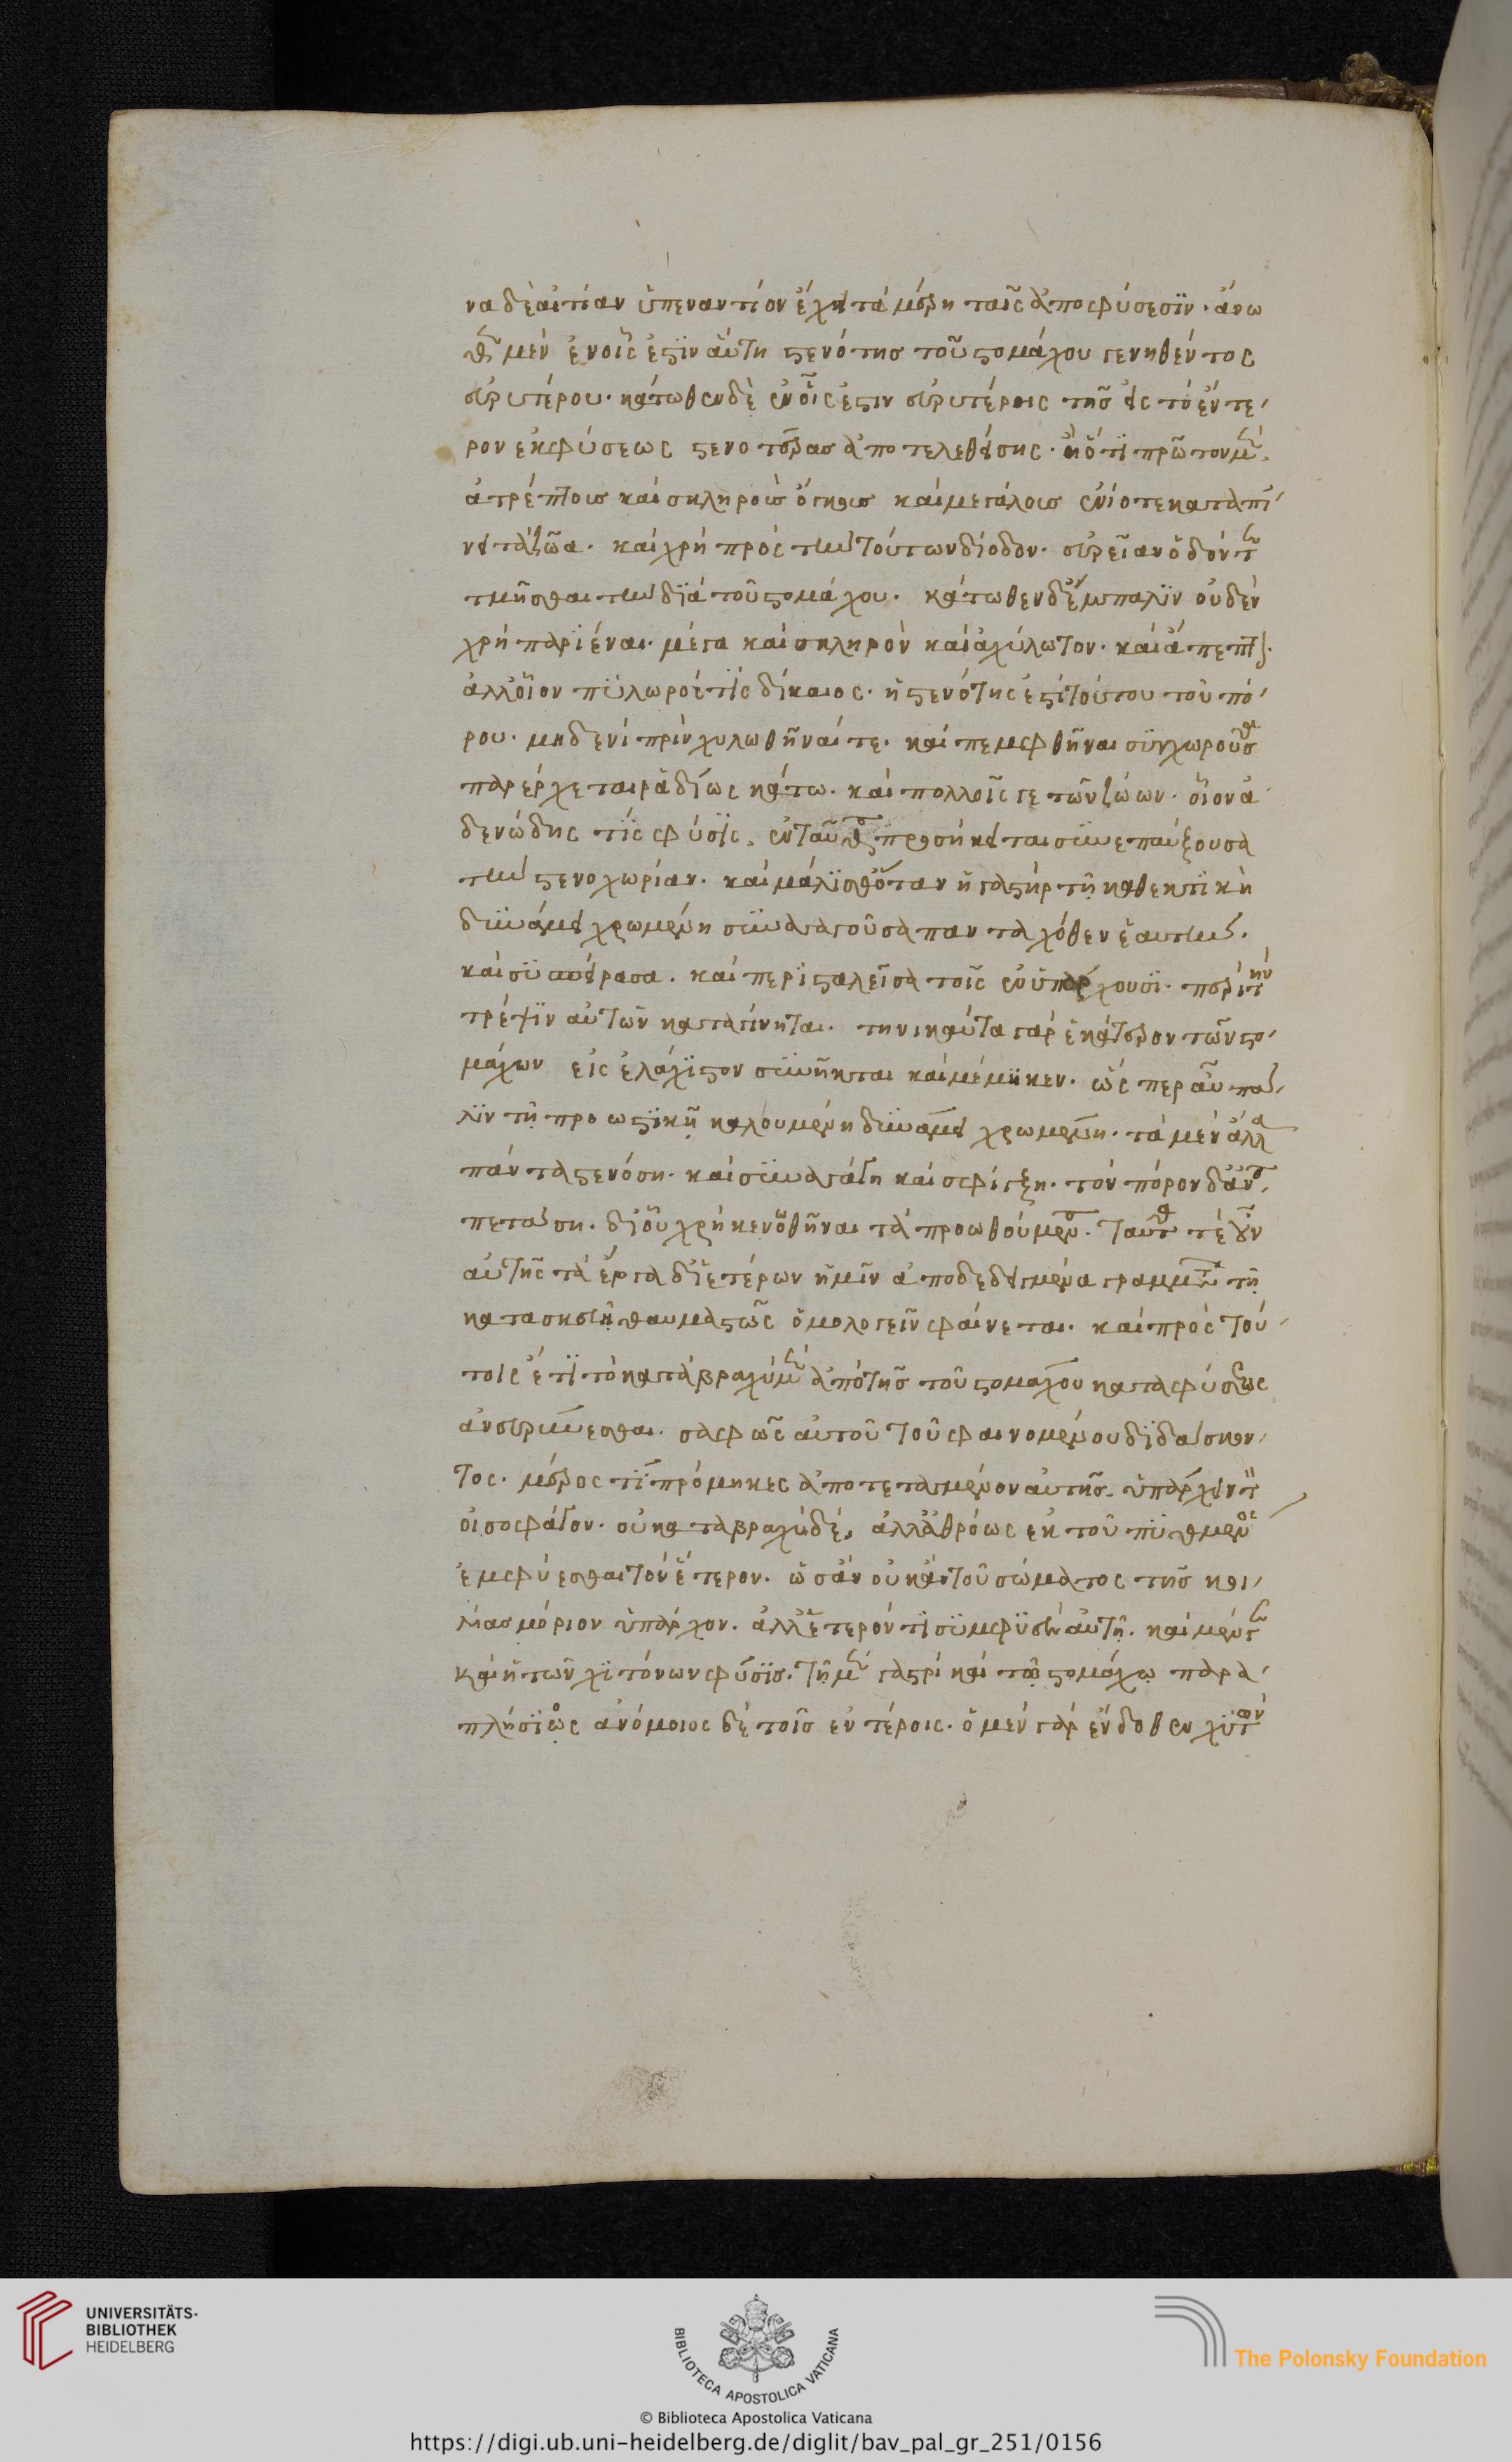 να δὲ αἰτίαν ὑπεναντίον ἔχει τὰ μέρη ταῖς ἀποφύσεσϊν · ἄνω
θεν μὲν ἐν οἷς ἐστὶν αὕτη στενότης τοῦ στομάχου γενηθέντος
εὐρυτέρου · κάτωθεν δὲ ἐν οἷς ἐστιν εὐρυτέροις τῆς εἰς τὸ ἔντε
ρον ἐκφύσεως στενοτέρας ἀποτελεσθείσης · ἢ ὅτι πρῶτον μὲν
ἀτρέπτοις καὶ σκληροῖς ὄγκοις καὶ μεγάλοις ἐνίοτε καταπί
νει τὰ ζῶα · καὶ χρὴ πρὸς τὴν τούτων δίοδον · εὐρεῖαν ὁδὸν
τμῆσθαι τὴν διὰ τοῦ στομάχου · κάτωθεν δ' ἔμπαλϊν οὐδὲν
χρὴ παριέναι · μέγα καὶ σκληρὸν καὶ ἀχύλωτον · καὶ ἄπεπτον ·
ἀλλ' οἷον πϋλωρός τίς δίκαιος · ἡ στενότης ἐστὶ τούτου τοῦ πό
ρου · μηδενὶ πρὶν χυλωθῆναί τε · καὶ πεμφθῆναι συγχωροῦσα
παρέρχεται ῥαδίως κάτω · καὶ πολλοῖς γε τῶν ζώων · οἷον ἀ
δενώδης τίς φύσϊς · ἐνταῦθα πρόσκειται συνεπαύξουσα
τὴν στενοχωρίαν · καὶ μάλϊσθ' ὅταν ἡ γαστὴρ τῇ καθεκτϊκῇ
δυνάμει χρωμένη συνάγουσα πανταχόθεν ἑαυτήν ·
καὶ συσπείρασα · καὶ περϊσταλεῖσα τοῖς ἐνυπάρχουσϊ · περὶ τὴν
τρέψϊν αὐτῶν καταγίνηται · τηνικαῦτα γὰρ ἑκάτερον τῶν στο
μάχων εἰς ἐλάχϊστον συνῆκται καὶ μέμϋκεν · ὥς περ αὖ πά
λϊν τῇ προωστϊκῇ καλουμένη δυνάμει χρωμένη · τὰ μὲν ἄλλα
πάντα στενόση · καὶ συναγάγη καὶ σφίγξη · τὸν πόρον δ' ἀνα
πετάση · δι' οὗ χρὴ κενωθῆναι τὰ προωθούμενα · ταῦτά τε οὖν
αὐτῆς τὰ ἔργα δι' ἑτέρων ἡμῖν ἀποδεδειγμένα γραμμάτων τῇ
κατασκευῇ θαυμαστῶς ὁμολογεῖν φαίνεται · καὶ πρὸς τού
τοις ἔτϊ τὸ κατὰ βραχὺ μὲν ἀπὸ τῆς τοῦ στομάχου καταφύσεως
ἀνευρύνεσθαι · σαφῶς αὐτοῦ τοῦ φαινομένου διδάσκον
τος · μέρος τϊ πρόμηκες ἀποτεταμένον αὐτῆς · ὑπάρχειν τὸν
οἰσοφάγον · οὐ κατὰ βραχὺ δὲ, ἀλλ' ἀθρόως ἐκ τοῦ πϋθμένος
ἐμφύεσθαι τὸν ἕτερον · ὡς ἂν οὐκ ἂν τοῦ σώματος τῆς κοι
λίας μόριον ὑπάρχον · ἀλλ' ἕτερόν τϊ συμφϋὲν αὐτῇ · καὶ μέντοι
καὶ ἡ τῶν χϊτόνων φύσϊς · τῇ μὲν γαστρὶ καὶ τῷ στομάχῳ παρα
πλήσϊος ἀνόμοιος δὲ τοῖς ἐντέροις · ὁ μὲν γὰρ ἔνδοθεν χϊτὼν
UNIVERSITÄTS-
BIBLIOTHEK
HEIDELBERG
BIBLIOTECA APOSTOLICA VATICANA
The Polonsky Foundation
© Biblioteca Apostolica Vaticana
https://digi.ub.uni-heidelberg.de/diglit/bav_pal_gr_251/0156